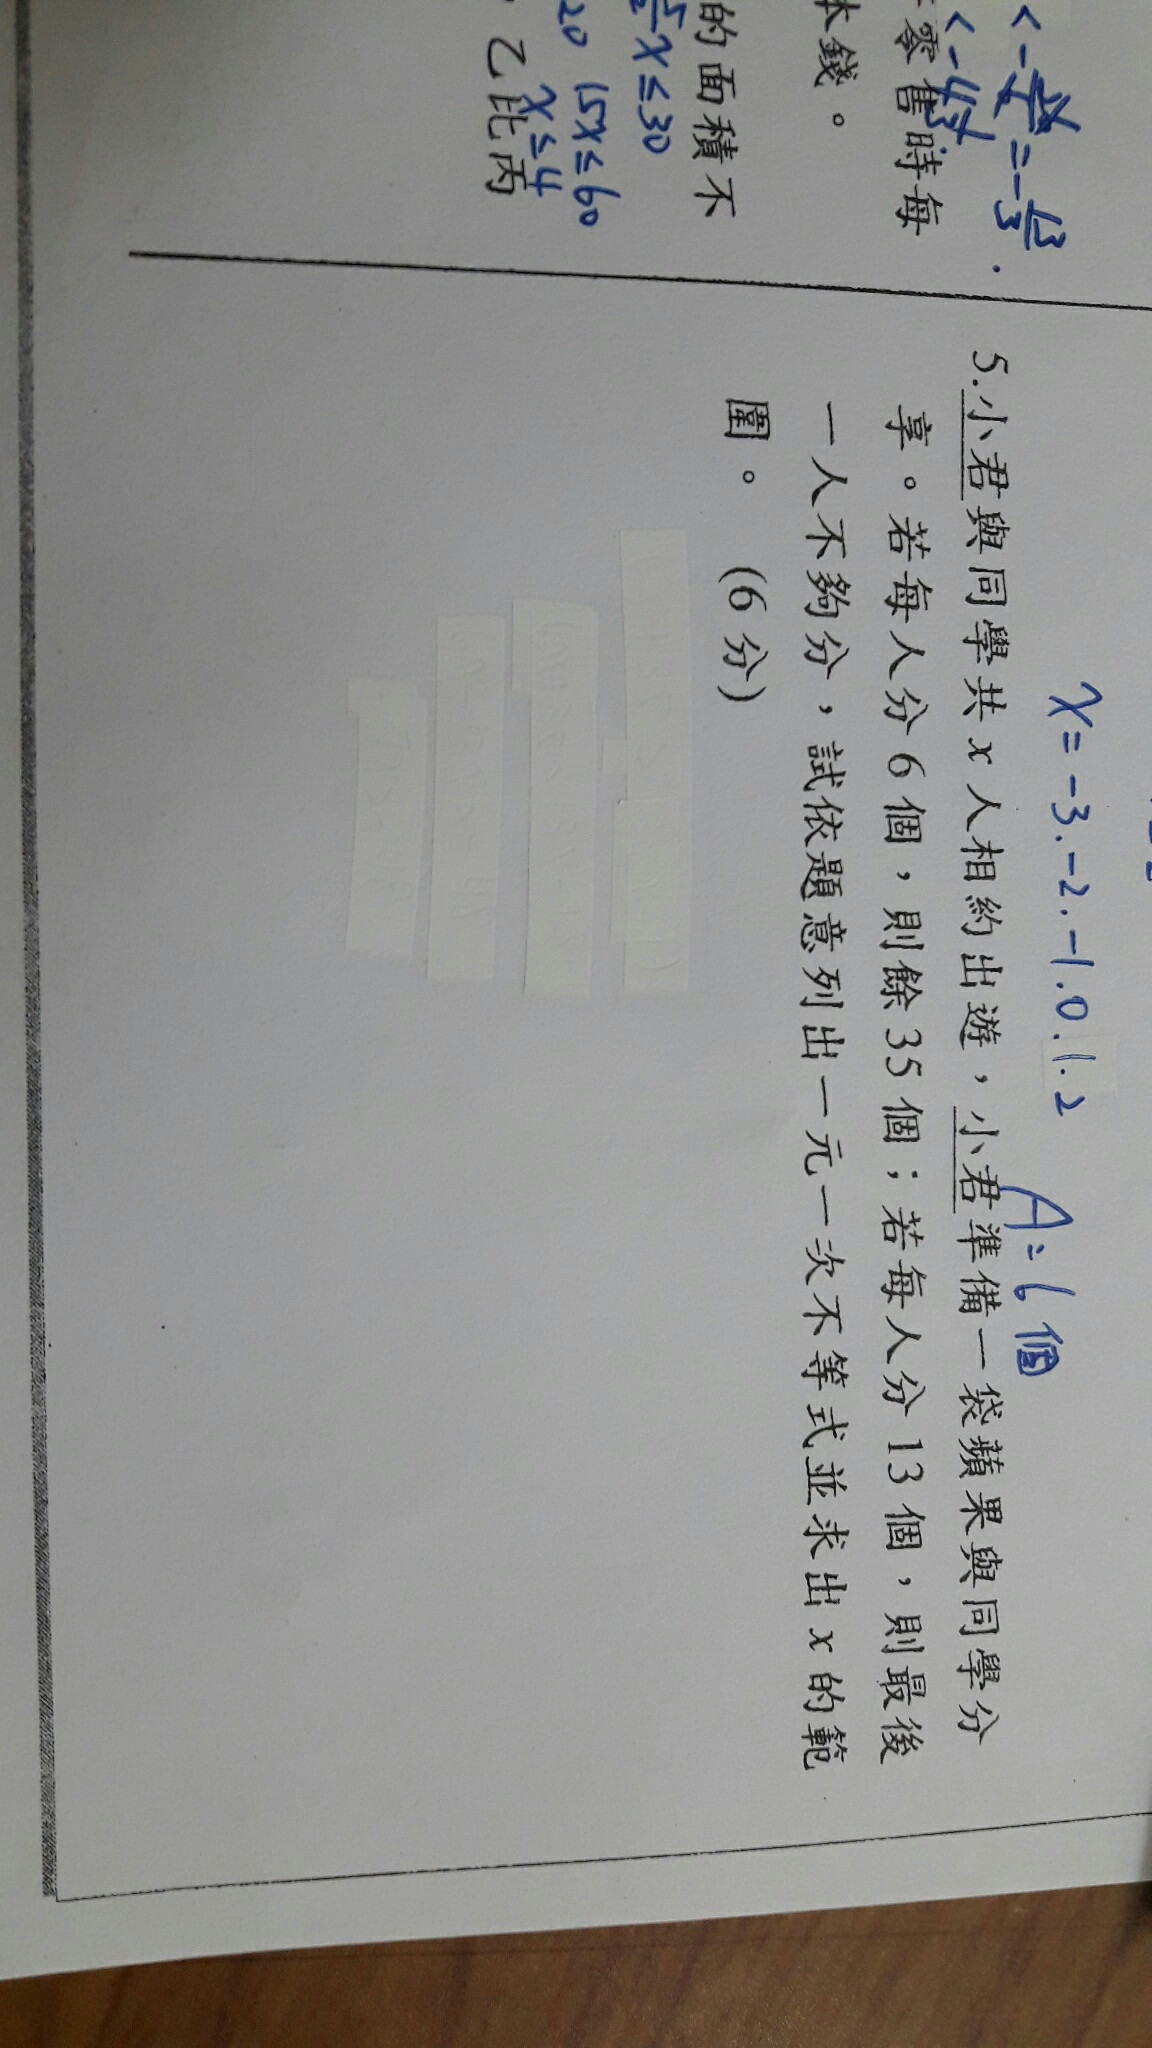 x=-3.-2.-1.0.1.2
A=6個
5.小君與同學共x人相約出遊，小君準備一袋蘋果與同學分
享。若每人分6個，則餘35個；若每人分13個，則最後
一人不夠分，試依題意列出一元一次不等式並求出x的範
圍。 (6分)
零售時每
本錢。
的面積不
x≤30
20 15x≤60
x≤4
乙比丙